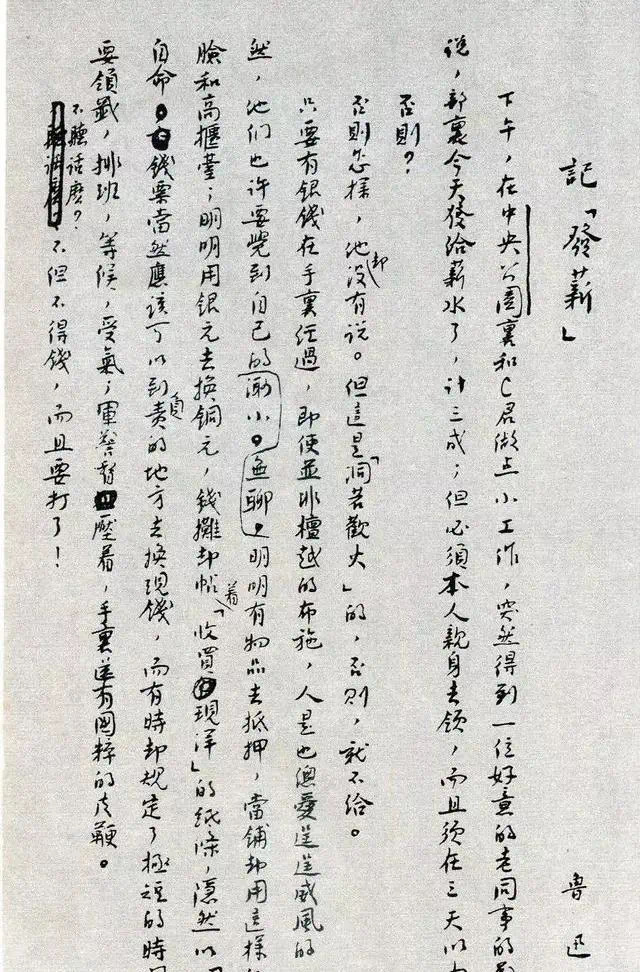 記「發薪」
魯迅
下午，在中央公園裏和C君做点小工作，突然得到一位好意的老同事的
说，部裏今天發给薪水了，计三成；但必須本人親身去領，而且须在三天以
否則？
否則怎樣，他却没有说。但這是「洞若觀火」的，否則，就不给。
只要有銀錢在手裏经過，即使並非檀越的布施，人是也總愛逞逞威風的
然，他们也许要覺到自己的渺小。無聊。明明有物品去抵押，當铺却用這樣
臉和高櫃臺；明明用银元去换铜元，錢攤却帖着「收買現洋」的纸條，隱然以
自命。錢票當然應该可以到負责的地方去换现錢，而有時却规定了極短的時
要領籤，排班，等候，受氣；軍警督壓着，手裏還有國粹的皮鞭。
不聽话麽？
不但不得錢，而且要打了！